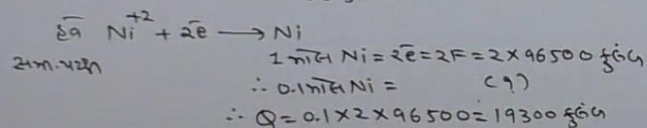 હવે Ni⁺² + 2e̅ ⟶ Ni
સમ. પરથી 1 મોલ Ni = 2e̅ = 2F = 2 × 96500 કુલંબ
∴ 0.1 મોલ Ni = (?)
∴ Q = 0.1 × 2 × 96500 = 19300 કુલંબ